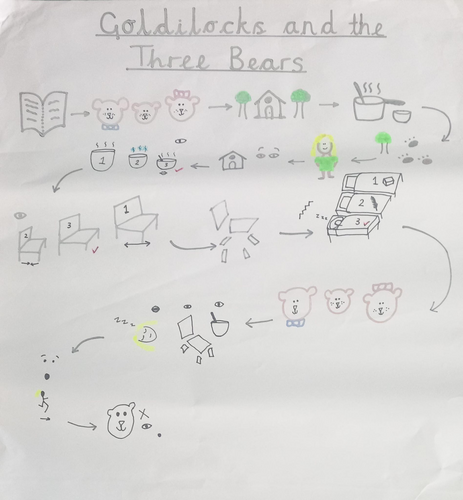 Goldilocks and the
Three Bears
1 2 3
1
2
3
2 3 1
zzz
zzz